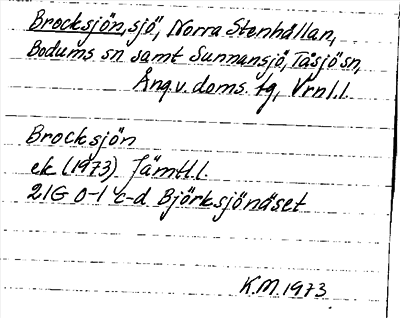 Brocksjön, sjö, Norra Stenhållan,
Bodums sn samt Sunnansjö, Tåsjö sn,
Ång.v. doms. tg, Vrnl.l.
Brocksjön
ek (1973) Jämtl.l.
21G 0-1 c-d Björksjönäset
K.M. 1973